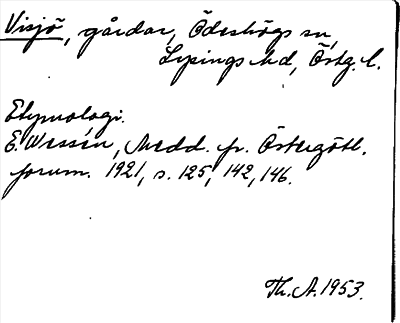 Visjö, gårdar, Ödeshögs sn,
Lysings hd, Östg. l.
Etymologi.
E. Wessén, Medd. fr. Östergötl.
fornm. 1921, s. 125, 142, 146.
Th. A. 1953.